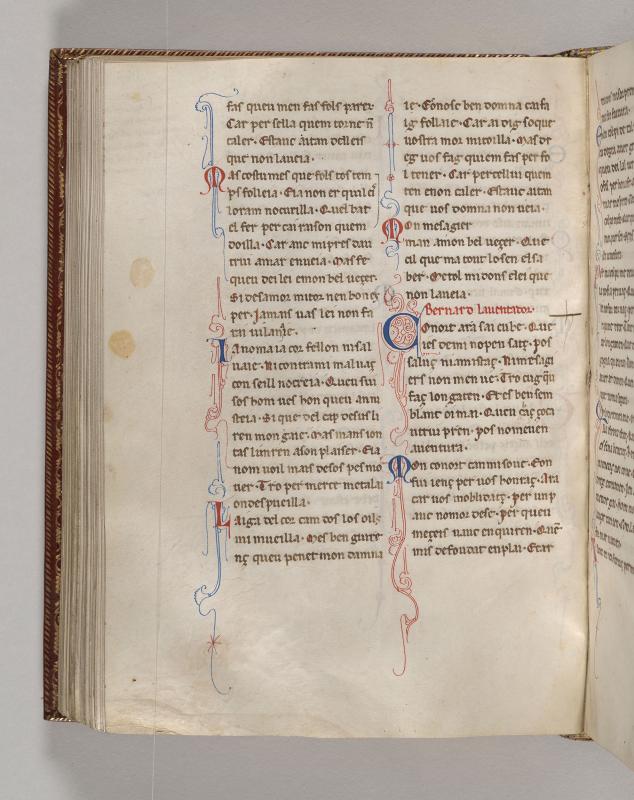 fas queu men fas fols parer
Car per sella quem torne ñ
caler. Estauc
que non laueia.
Mas costumes que fols tos tem
ps folleia. E ia non er qual
loram nocurilla. Quel bat
el fer per cai rason quem
doilla. Car anc mi pres dau
trui amar enueia. Mas fe
queu dei lei emon bel ueger.
Si desamor mitor nen bon
per. Jamais uas lei non fa
rai uilanie.
Ia noma ia cor fellon ni sal
uaie. Ni contra mi maluaç
con seill nocreia. Queu sui
sos hom ues hon queu
steia. Si que del cap desus li
ren mon gaie. Mas mans ion
tas li m ren ason plaiser. E ia
nom uoil mais desos pes mo
uer. Tro per merce metala
on despueilla.
Laiga del cor cam dos los oils
mi mueilla. Mes ben guire
nç queu penet mon damna
ie. Conosc ben domna caifa
ig follaie. Car ai dig so que
uostra mor mi toilla. Mas de
eg uos fag qui em fas per fo
l tener. Car per cellui quem
ten enon caler. Estauc aitan
que uos domna non ueia.
Mon mesagier
man amon bel ueger. Que
cil que ma tout lo sen el sa
ber. Me tol midons e lei que
non laueia.
Bernard lauentador.
Conort ara sai eu be. Que
ies de mi no pen saiç. pos
saluç ni amistaç. Ni mesagi
ers non men ue. Tro cug qu
faç lon gaten. Et es ben sem
blant oi mai. Queu caç çoci
uttru pren. pos nomeuen
auentura.
Mon conort can mi soue. Con
fui ienç per uos honraç. Ara
car uos moblidaç. per un p
auc nomor desc. per queu
meçeis uauc enquiren. Que
mis de foudat enplai. E car